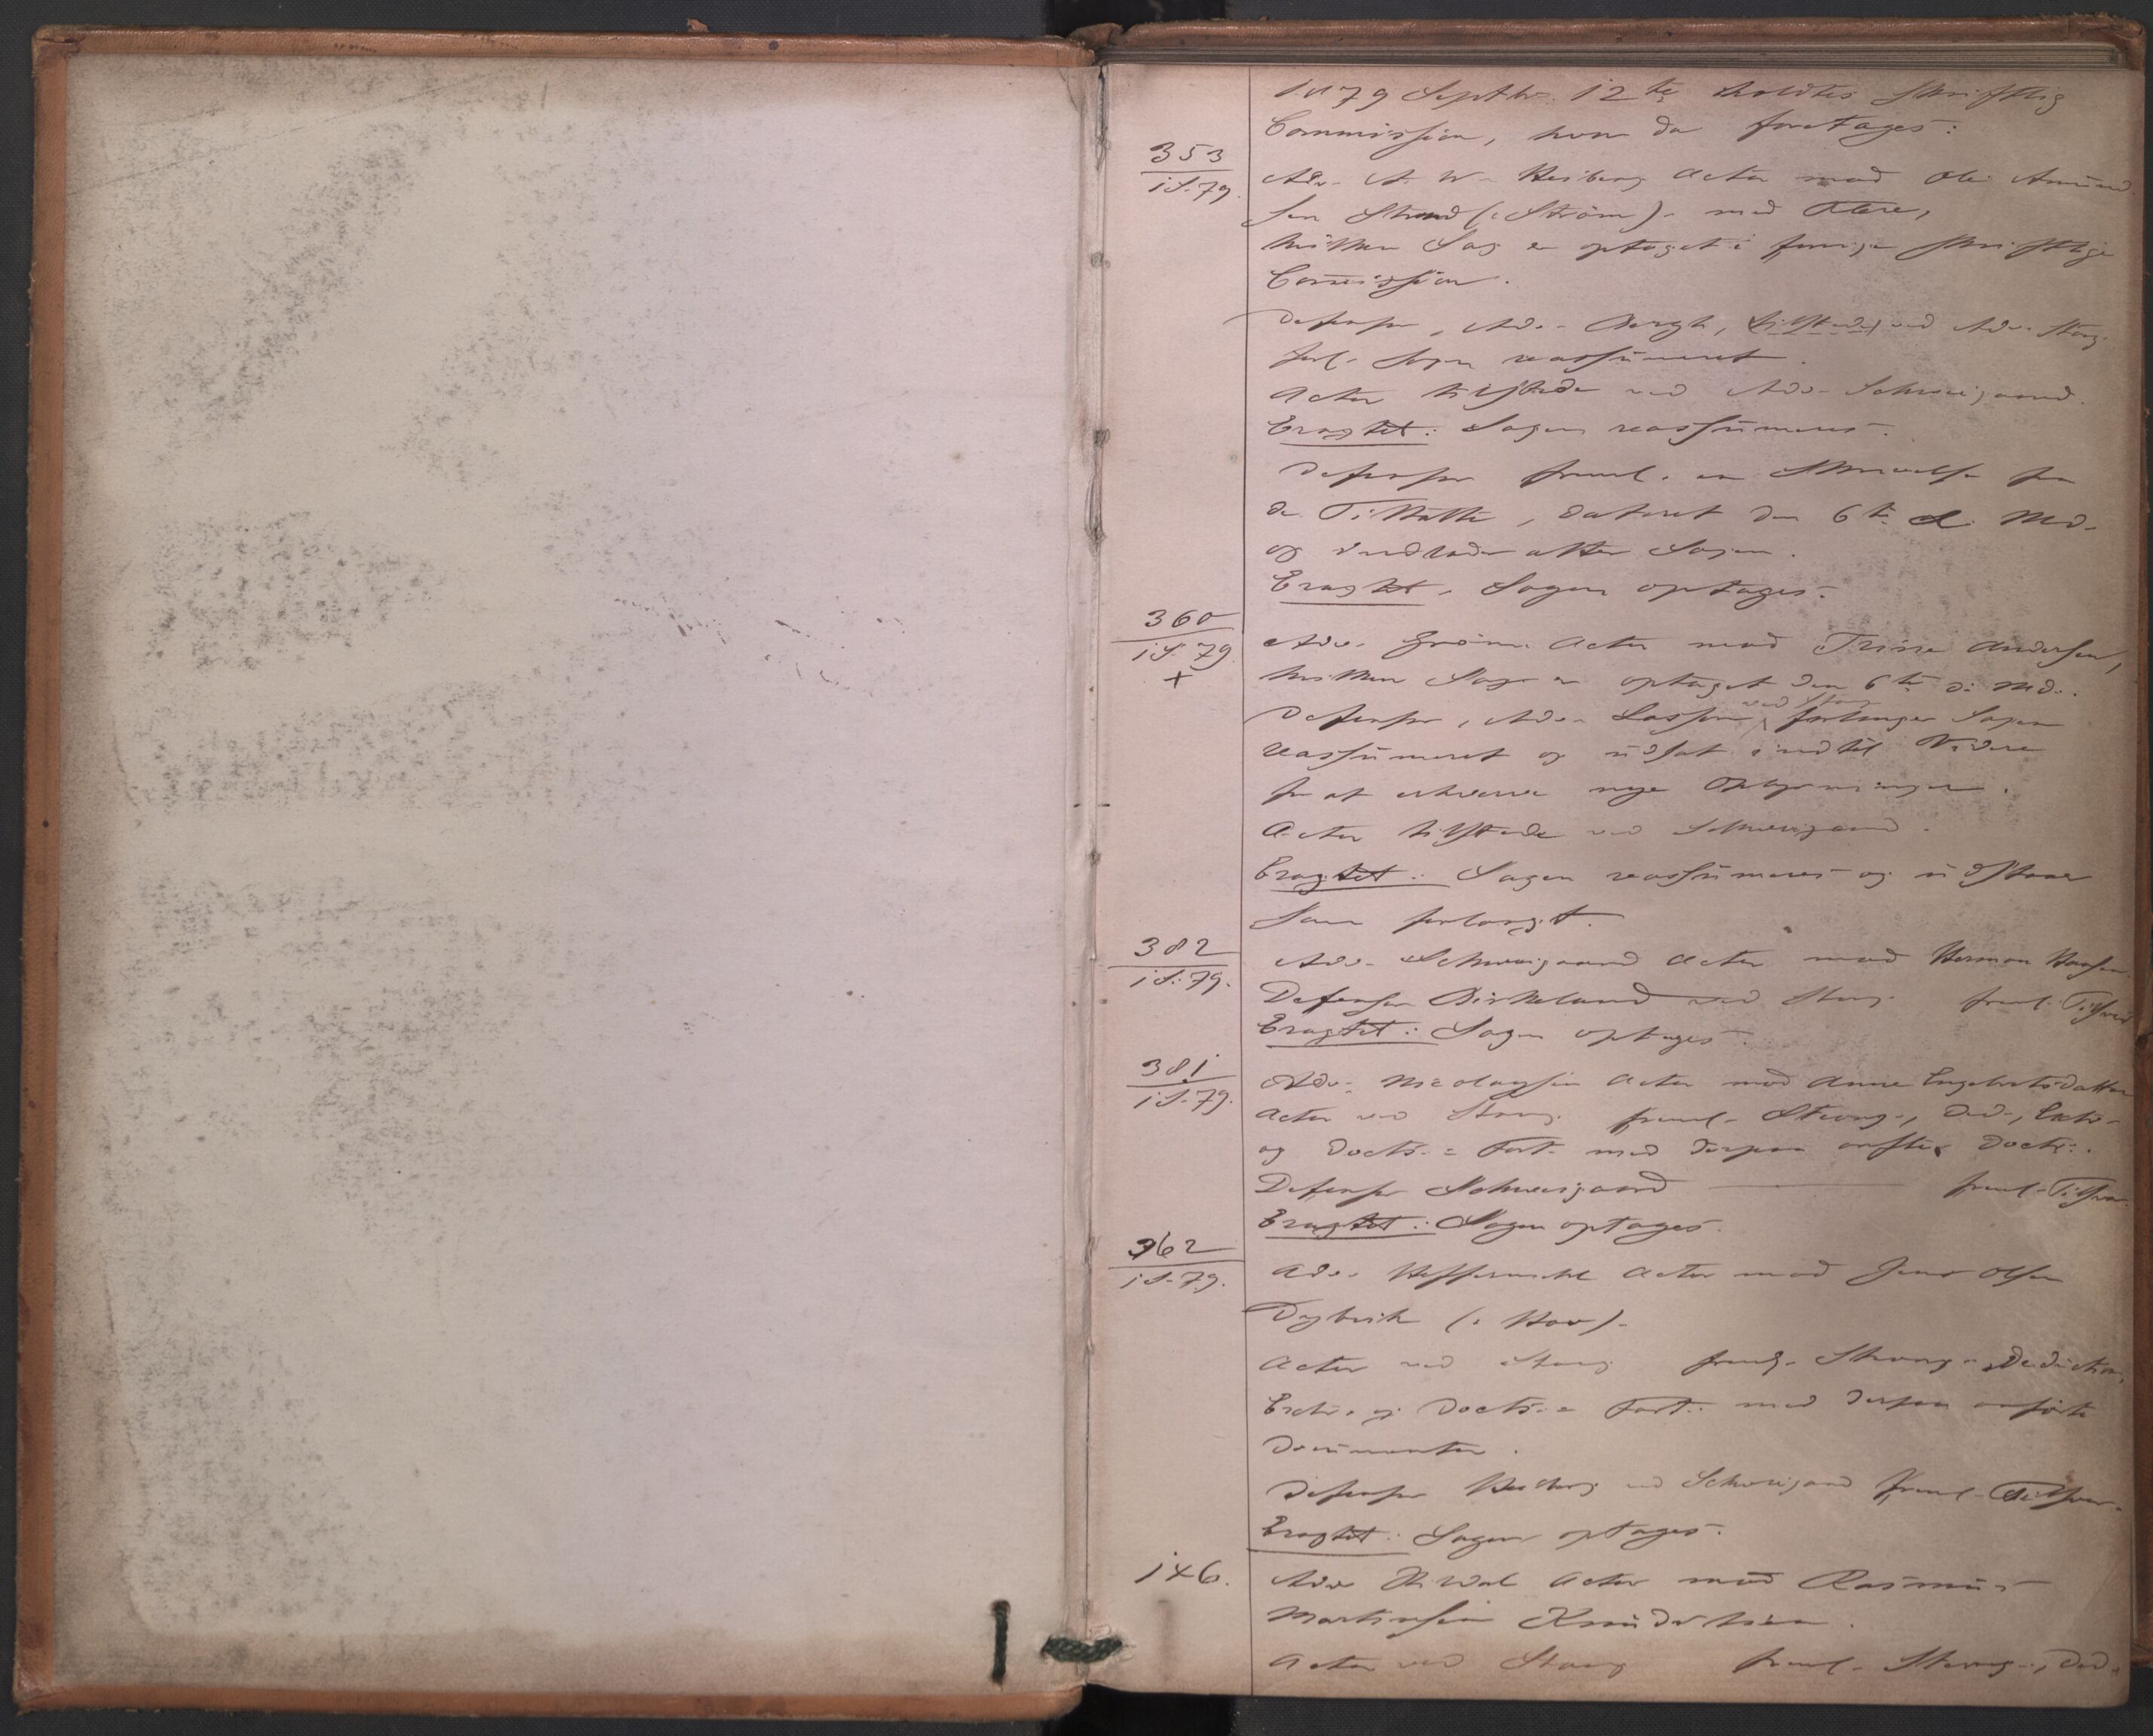 1879 Septbr. 12te holdtes skriftlig
Commission, hvor da foretages:
353
i S. 79.
Adv. A. W. Heiberg Actor mod Ole Amund
sen Strand (: Strøm). med Flere,
hvilken Sag er optaget i forrige skriftlige
Com̅ission.
Defensor, Adv. Bergh, tilstede ved Adv. Stang
forl. Sagen reassumeret.
Actor tilstede ved Adv. Schweigaard.
Eragtet: Sagen reassumeres.
Defensor freml. en Skrivelse fra
de Tiltalte, dateret den 6te d. Md.
og indlader atter Sagen.
Eragtet. Sagen optages.
360
i S. 79.
+
Adv. Actor mod Trine Andersen,
hvilken Sag er optaget den 6te d. Md.
Defensor, Adv. Lassen ved Stang forlanger Sagen
reassumeret og udsat indtil Videre
for at erhverve nye Oplysninger.
Actor tilstede ved Schweigaard.
Eragtet: Sagen reassumeres og udstaar
som forlangt.
382
i S. 79.
Adv. Schweigaard Actor mod Herman Hansen
Defensor Birkeland ved Stang freml. Tilsvar
Eragtet: Sagen optages.
381
i S. 79.
Adv. Nicolaysen Actor mod Anne Engebretsdatter
Actor ved Stang freml. Stevng., Ded., Extr.
og Docts. = Fort. med derpaa anførte Doctr.
Defensor Schweigaard freml. Tilsvar
Eragtet: Sagen optages.
362
i S. 79.
Adv. Hesselberg Actor mod Jens Olsen
Dybvik (: Hov).
Actor ved Stang freml. Stevng. Deduction,
Extr. og Docts. = Fort. med derpaa anførte
Documenter.
Defensor Heiberg ved Schweigaard freml. Tilsvar.
Eragtet: Sagen optages.
146.
Adv. Actor mod Rasmus
Martinsen
Actor ved Stang freml. Stevng., Ded.